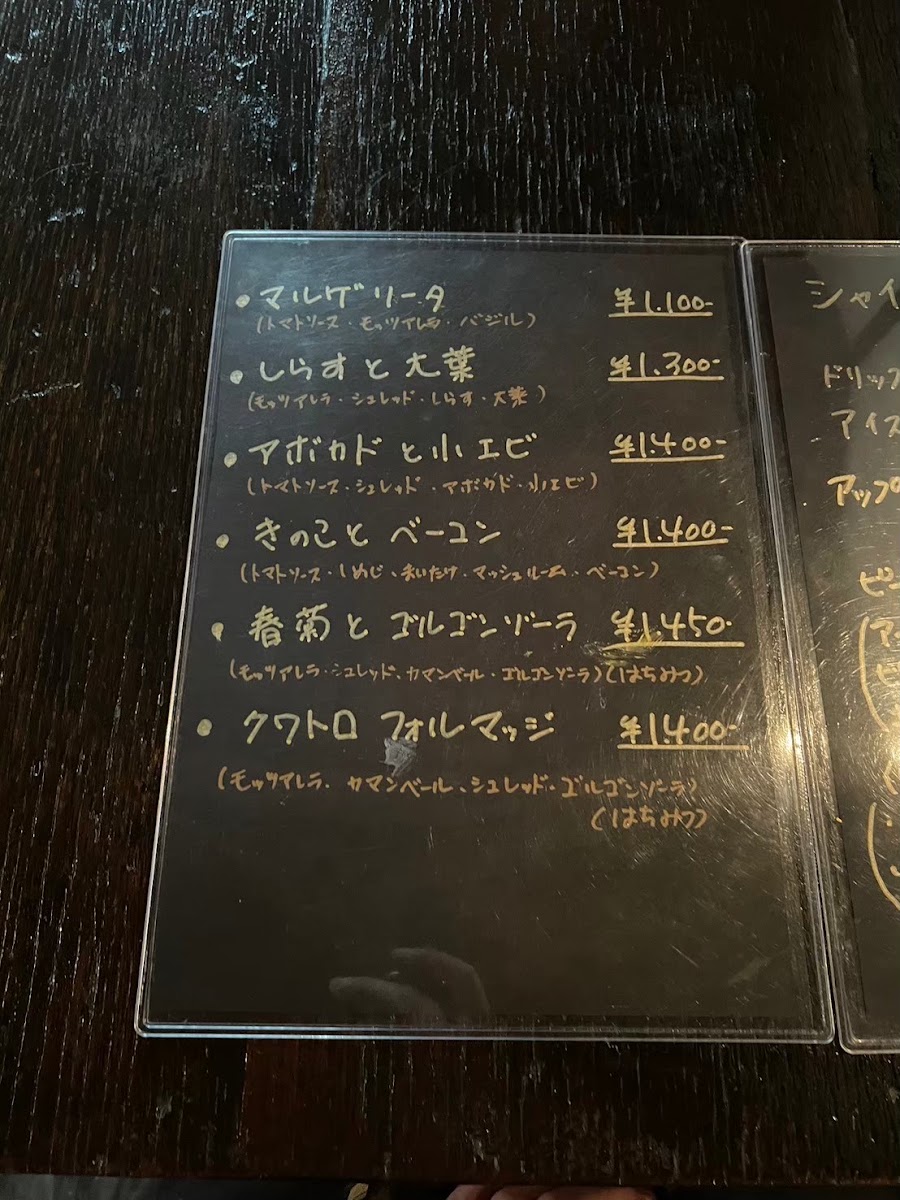 ・マルゲリータ ¥1.100-
(トマトソース・モッツァレラ・バジル)
・しらすと大葉 ¥1.300-
(モッツアレラ・シュレッド・しらす・大葉)
・アボカドと小エビ ¥1.400-
(トマトソース・シュレッド・アボカド・小エビ)
・きのことベーコン ¥1.400-
(トマトソース・しめじ・まいたけ・マッシュルーム・ベーコン)
・春菊とゴルゴンゾーラ ¥1.450-
(モッツアレラ・シュレッド・カマンベール・ゴルゴンゾーラ)(はちみつ)
・クワトロ フォルマッジ ¥1.400-
(モッツアレラ・カマンベール・シュレッド・ゴルゴンゾーラ)
(はちみつ)
シャイ
ドリップ
アイス
アップ
ビー